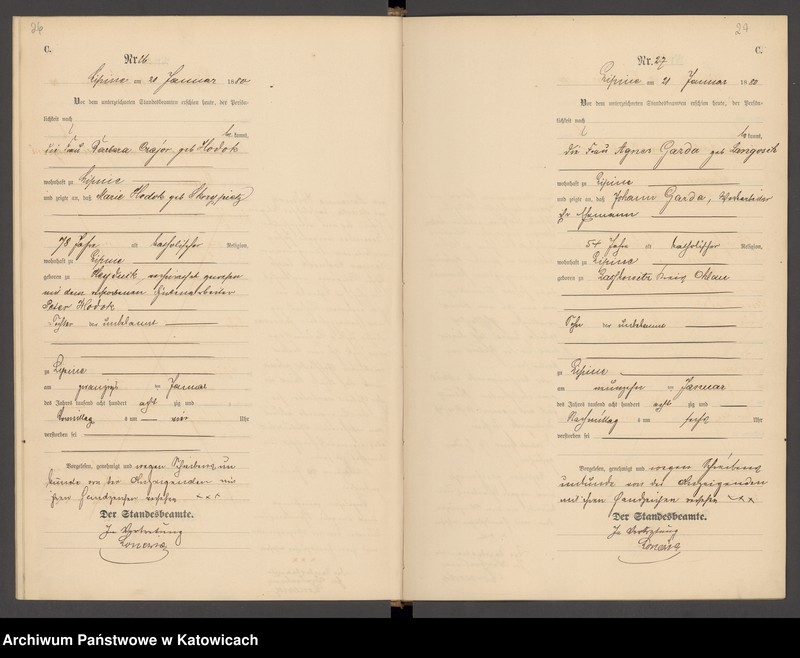 26
C.
Nr. 26
Lipine am 21 Januar 1880
Vor dem unterzeichneten Standesbeamten erschien heute, der Persön-
lichkeit nach
be kannt,
die Frau Barbara geb Hodok
wohnhaft zu Lipine
und zeigte an, daß Marie Hodok geb
78 Jahre alt katholischer Religion,
wohnhaft zu Lipine
geboren zu verheirathet gewesen
mit dem verstorbenen Hüttenarbeiter
Peter Hodok
Tochter des unbekannt
zu Lipine
am zwanzigsten Januar
des Jahres tausend acht hundert acht zig und
Vormittag um Uhr
verstorben sei
Vorgelesen, genehmigt und wegen Schreibens un
kunde von der Anzeigenden mit
ihren Handzeichen versehen xxx
Der Standesbeamte.
In Vertretung
27
C.
Nr. 27
Lipine am 21 Januar 1880
Vor dem unterzeichneten Standesbeamten erschien heute, der Persön-
lichkeit nach
be kannt,
die Frau Agnes Garda geb
wohnhaft zu Lipine
und zeigte an, daß Johann Garda,
ihr Ehemann
54 Jahre alt katholischer Religion,
wohnhaft zu Lipine
geboren zu Kreis
Sohn des unbekannt
zu Lipine
am Januar
des Jahres tausend acht hundert acht zig und
Nachmittag um sechs Uhr
verstorben sei
Vorgelesen, genehmigt und wegen Schreibens
unkunde von der Anzeigenden
mit ihren Handzeichen versehen xxx
Der Standesbeamte.
In Vertretung
Archiwum Państwowe w Katowicach